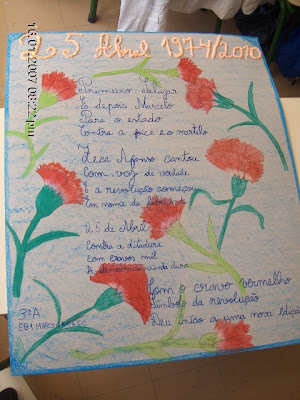 16/01/2007 08:22 pm
25 Abril 1974/2010
Primeiro Salazar
E depois Marcelo
Para o estado
Contra a foice e o martelo
Zeca Afonso cantou
Com voz de verdade
E a revolução começou
Em nome da liberdade
25 de Abril
Contra a ditadura
Com cravos mil
A democracia ainda dura
Com o cravo vermelho
Símbolo da revolução
Deu início a uma nova edição
3ºA
EB1